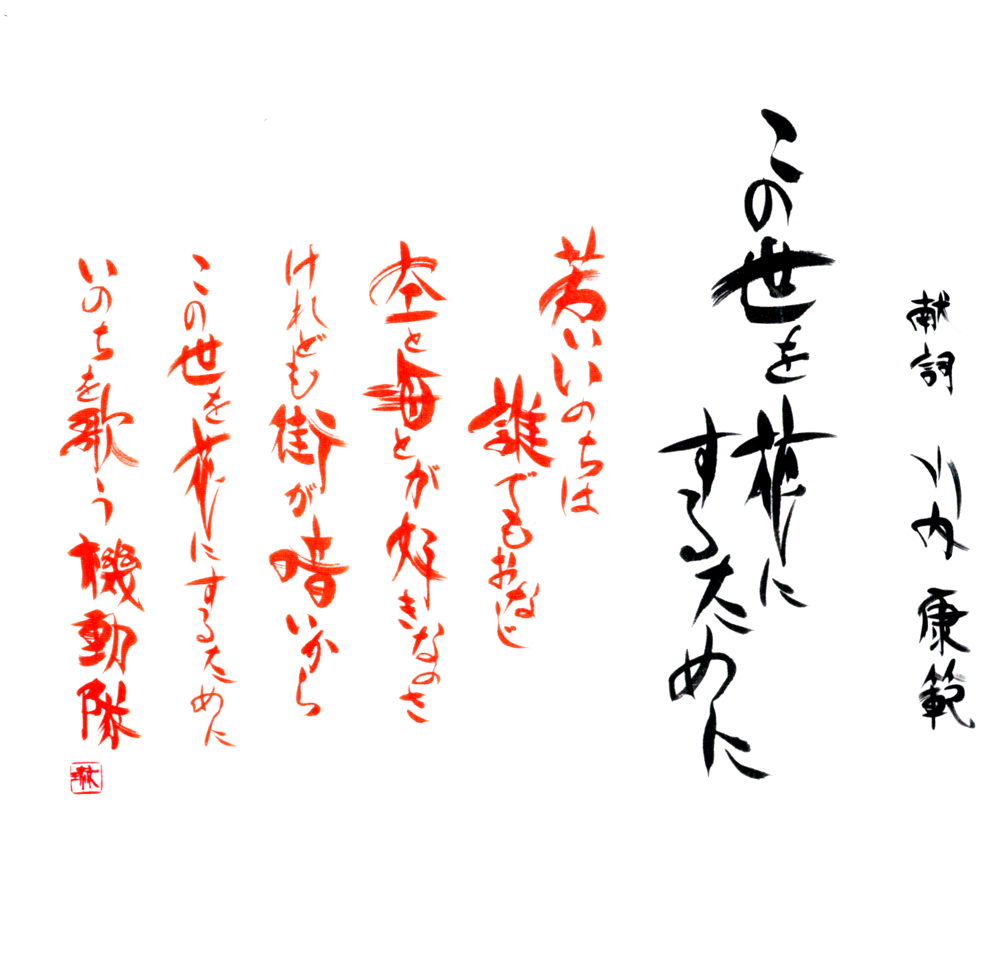 献詞 川内康範
この世を花に
するために
若いいのちは
誰でもおなじ
空と海とが好きなのさ
けれども街が暗いから
この世を花にするために
いのちを歌う機動隊